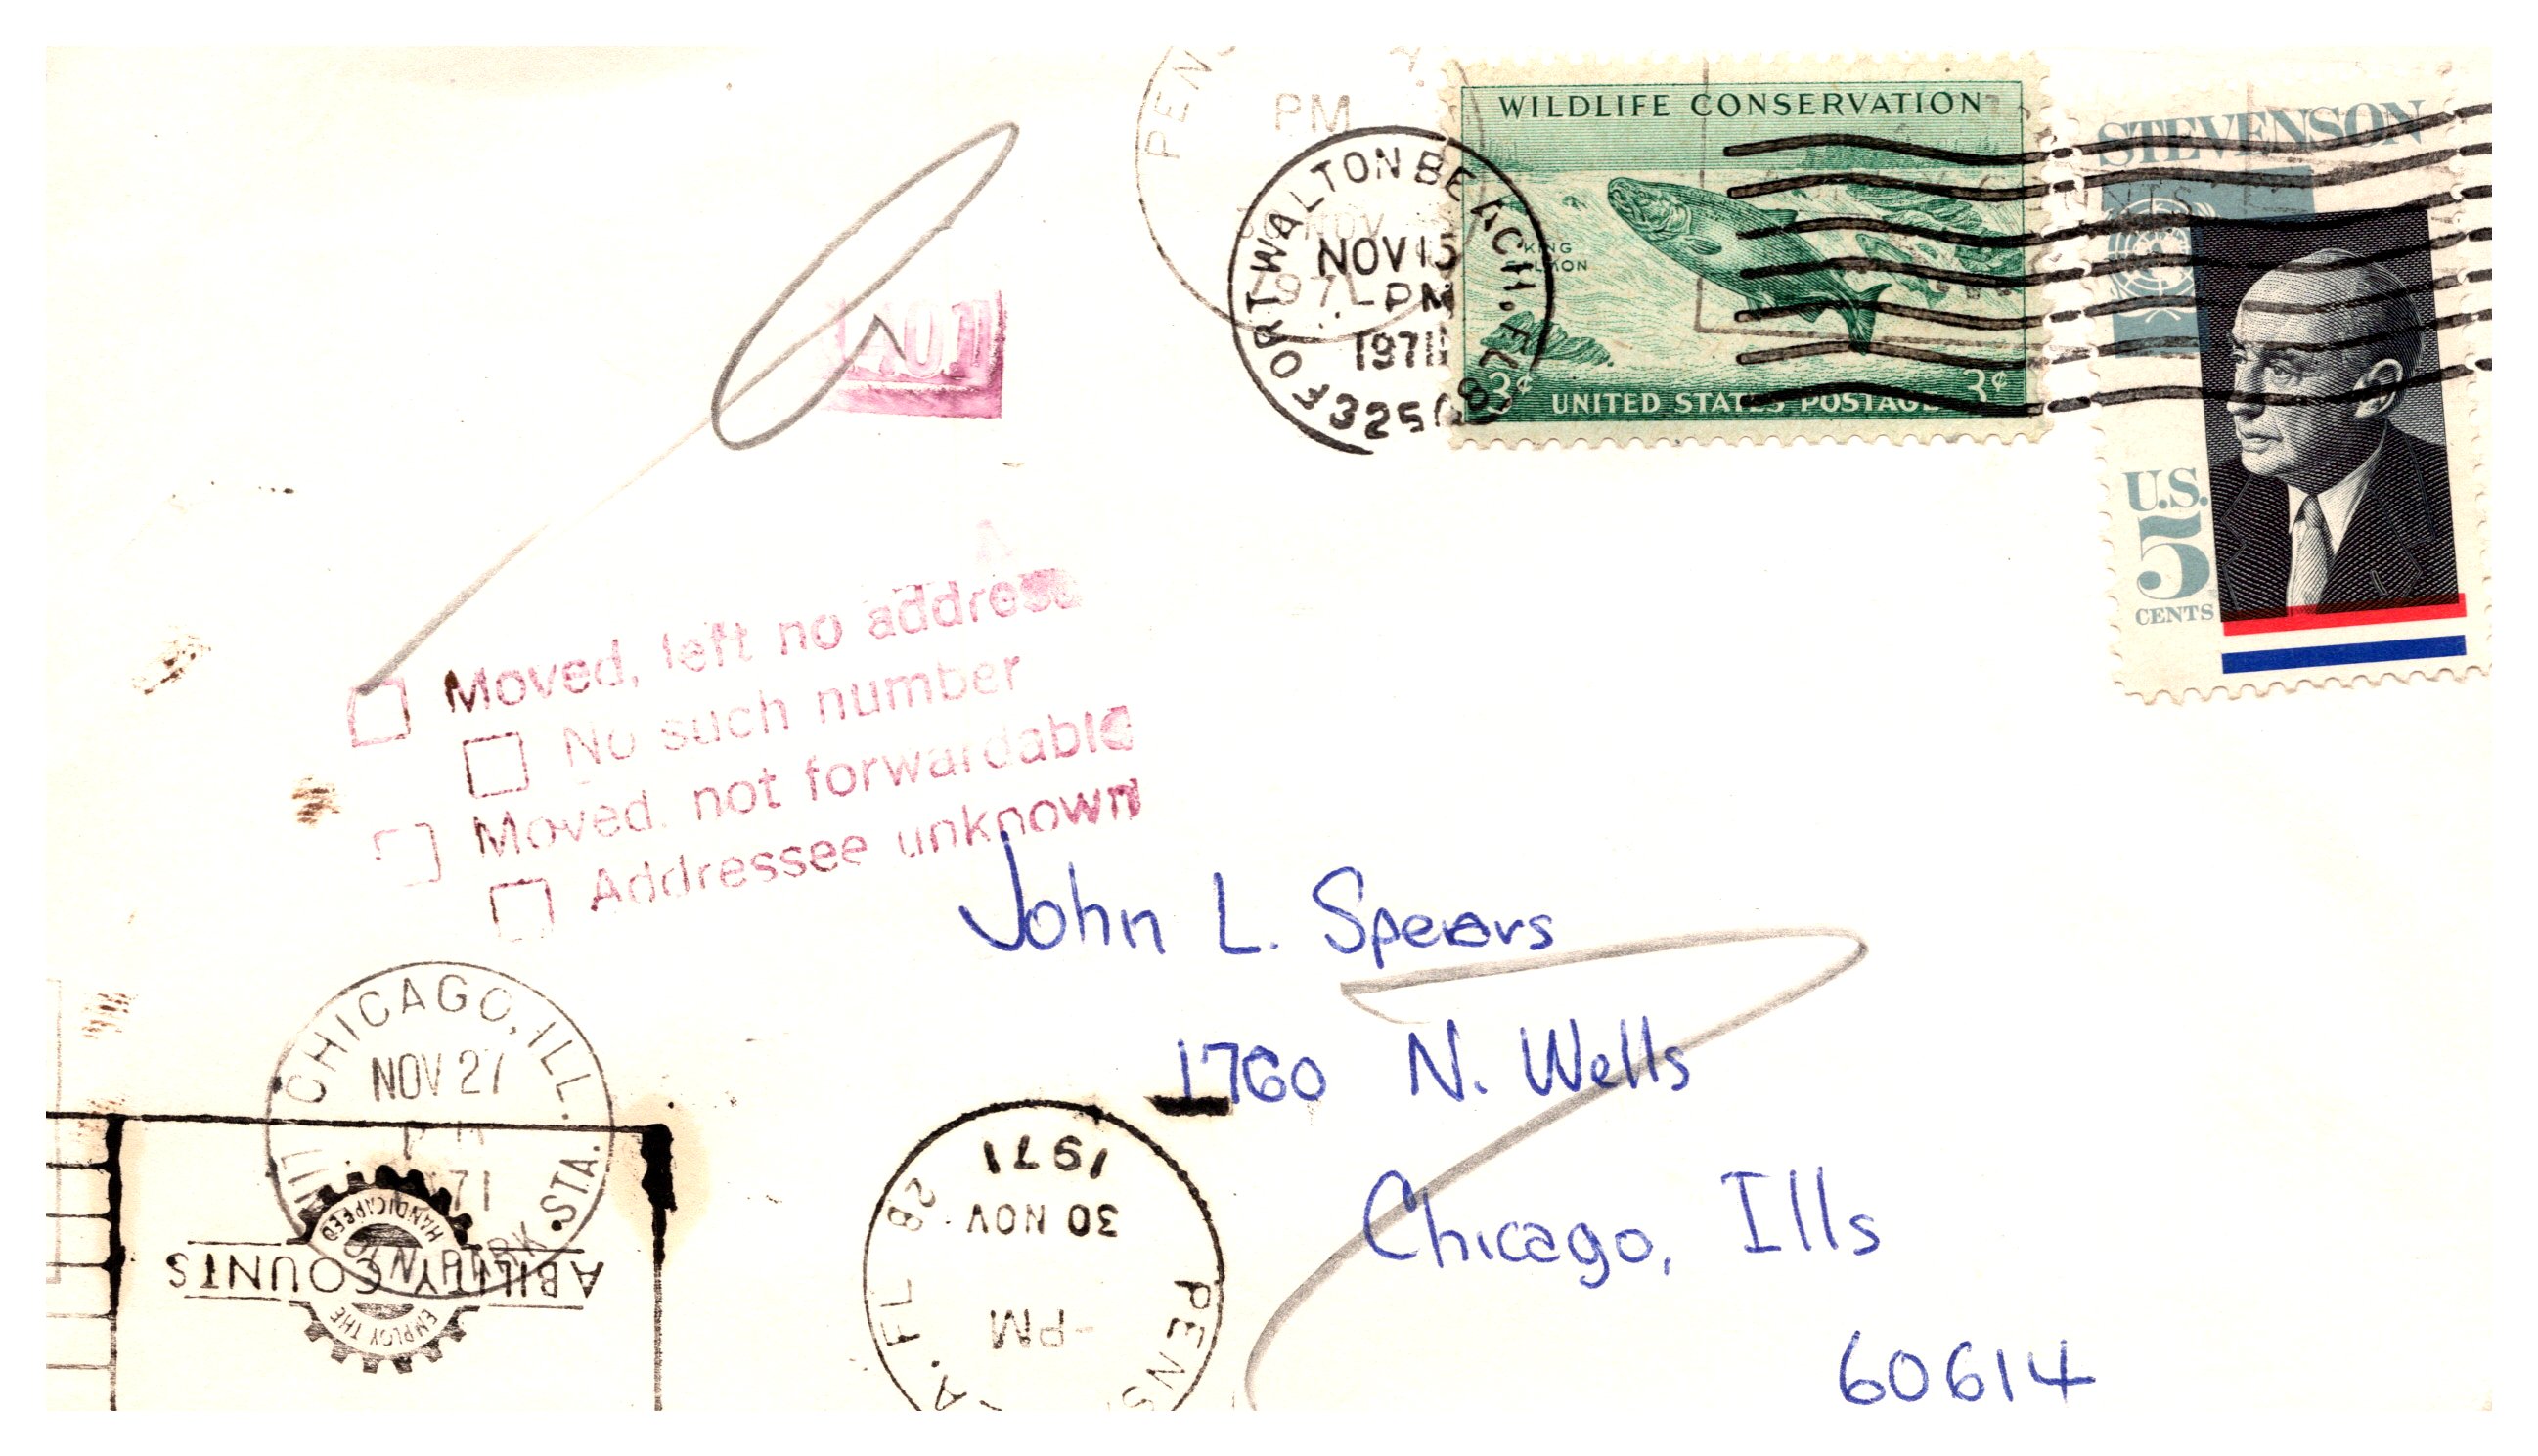 PENS
PM
NOV
FORT WALTON BEACH. FLA
NOV 15
PM
1971
WILDLIFE CONSERVATION
KING
SALMON
3¢
3¢
UNITED STATES POSTAGE
STEVENSON
U.S.
5
CENTS
Moved, left no address
No such number
Moved, not forwardable
Addressee unknown
John L. Spears
1760 N. Wells
Chicago, Ills
60614
CHICAGO, ILL.
NOV 27
71
STA.
EMPLOY THE
ABILITY COUNTS
HANDICAPPED
PENS
A. FL
28
PM
30 NOV
1971